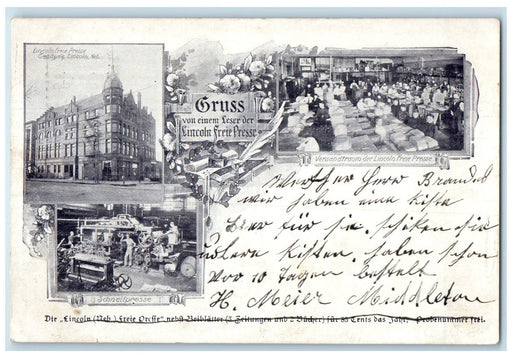 Lincoln Freie Presse
Gebäude, Lincoln, Neb.
Gruss
von einem Leser der
Lincoln Freie Presse
Versandtraum der Lincoln Freie Presse
Schnellpresse
Werther Herr Brandes
wir haben eine Kiste
Bier für sie, schiken sie
unsere Kisten, haben schon
vor 10 Tagen bestelt
H. Meier Middleton
Die „Lincoln (Neb.) Freie Presse" nebst Beiblätter (3 Zeitungen und 2 Bücher) für 85 Cents das Jahr. Probenummer frei.